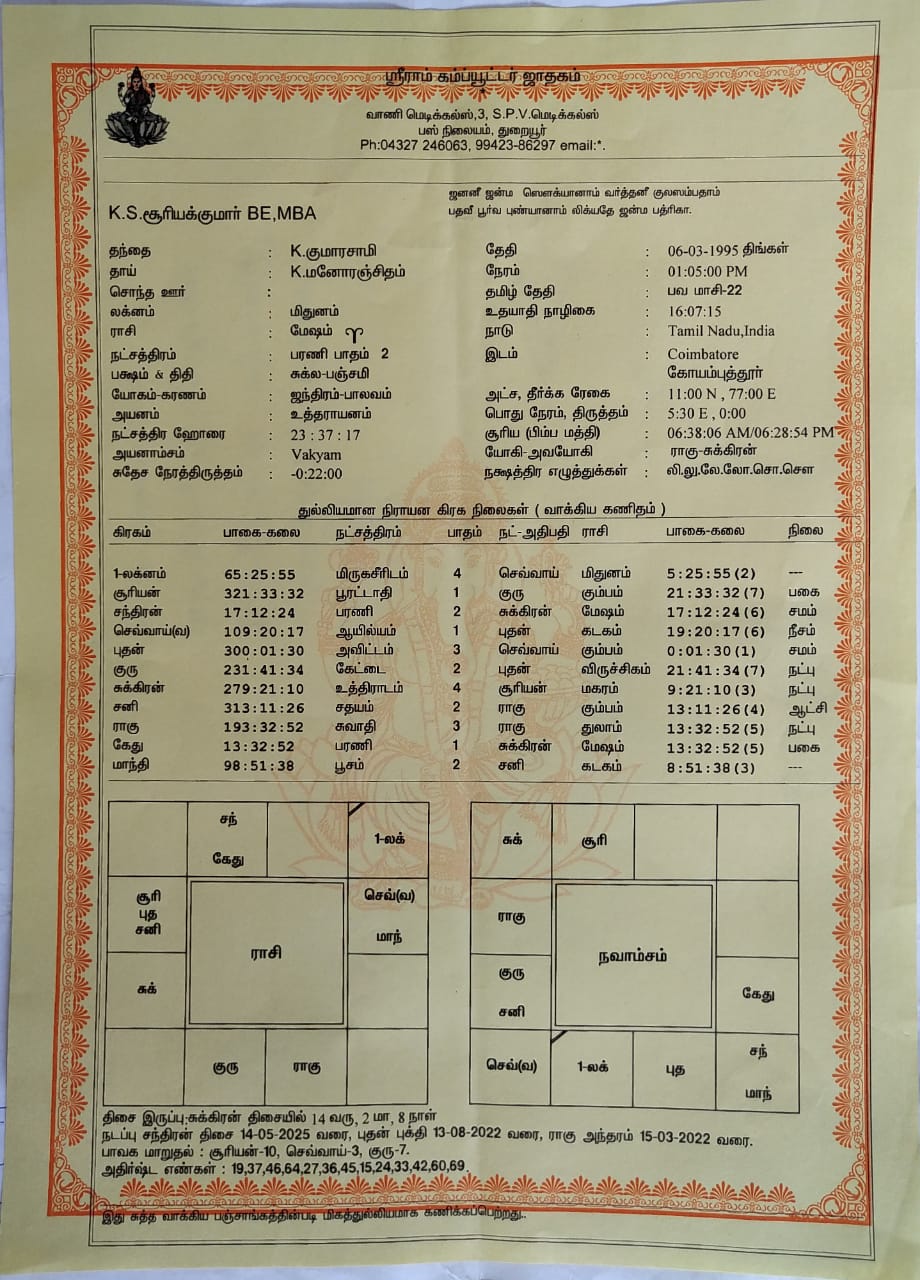 ஸ்ரீராம் கம்ப்யூட்டர் ஜாதகம்
வாணி மெடிக்கல்ஸ்,3, S.P.V.மெடிக்கல்ஸ்
பஸ் நிலையம், துறையூர்
Ph:04327 246063, 99423-86297 email:*.
ஜனனீ ஜன்ம ஸௌக்யானாம் வர்த்தனீ குலஸம்பதாம்
பதவீ பூர்வ புண்யானாம் லிக்யதே ஜன்ம பத்ரிகா.
K.S.சூரியக்குமார் BE,MBA
தந்தை : K.குமாரசாமி தேதி : 06-03-1995 திங்கள்
தாய் : K.மனோரஞ்சிதம் நேரம் : 01:05:00 PM
சொந்த ஊர் : தமிழ் தேதி : பவ மாசி-22
லக்னம் : மிதுனம் உதயாதி நாழிகை : 16:07:15
ராசி : மேஷம் ♈ நாடு : Tamil Nadu,India
நட்சத்திரம் : பரணி பாதம் 2 இடம் : Coimbatore
பக்ஷம் & திதி : சுக்ல-பஞ்சமி கோயம்புத்தூர்
யோகம்-கரணம் : ஐந்திரம்-பாலவம் அட்ச, தீர்க்க ரேகை : 11:00 N , 77:00 E
அயனம் : உத்தராயனம் பொது நேரம், திருத்தம் : 5:30 E , 0:00
நட்சத்திர ஹோரை : 23 : 37 : 17 சூரிய (பிம்ப மத்தி) : 06:38:06 AM/06:28:54 PM
அயனாம்சம் : Vakyam யோகி-அவயோகி : ராகு-சுக்கிரன்
சுதேச நேரத்திருத்தம் : -0:22:00 நக்ஷத்திர எழுத்துக்கள் : லி.லு.லே.லோ.சொ.சௌ
துல்லியமான நிராயன கிரக நிலைகள் ( வாக்கிய கணிதம் )
கிரகம் பாகை-கலை நட்சத்திரம் பாதம் நட்-அதிபதி ராசி பாகை-கலை நிலை
1-லக்னம் 65:25:55 மிருகசீரிடம் 4 செவ்வாய் மிதுனம் 5:25:55(2) ---
சூரியன் 321:33:32 பூரட்டாதி 1 குரு கும்பம் 21:33:32(7) பகை
சந்திரன் 17:12:24 பரணி 2 சுக்கிரன் மேஷம் 17:12:24(6) சமம்
செவ்வாய்(வ) 109:20:17 ஆயில்யம் 1 புதன் கடகம் 19:20:17(6) நீசம்
புதன் 300:01:30 அவிட்டம் 3 செவ்வாய் கும்பம் 0:01:30(1) சமம்
குரு 231:41:34 கேட்டை 2 புதன் விருச்சிகம் 21:41:34(7) நட்பு
சுக்கிரன் 279:21:10 உத்திராடம் 4 சூரியன் மகரம் 9:21:10(3) நட்பு
சனி 313:11:26 சதயம் 2 ராகு கும்பம் 13:11:26(4) ஆட்சி
ராகு 193:32:52 சுவாதி 3 ராகு துலாம் 13:32:52(5) நட்பு
கேது 13:32:52 பரணி 1 சுக்கிரன் மேஷம் 13:32:52(5) பகை
மாந்தி 98:51:38 பூசம் 2 சனி கடகம் 8:51:38(3) ---
சந்
கேது
1-லக்
சூரி
புத
சனி
செவ்(வ)
மாந்
ராசி
சுக்
குரு
ராகு
சுக்
சூரி
ராகு
நவாம்சம்
குரு
சனி
கேது
செவ்(வ)
1-லக்
புத
சந்
மாந்
திசை இருப்பு:சுக்கிரன் திசையில் 14 வரு, 2 மா, 8 நாள்
நடப்பு சந்திரன் திசை 14-05-2025 வரை, புதன் புக்தி 13-08-2022 வரை, ராகு அந்தரம் 15-03-2022 வரை.
பாவக மாறுதல் : சூரியன்-10, செவ்வாய்-3, குரு-7.
அதிர்ஷ்ட எண்கள் : 19,37,46,64,27,36,45,15,24,33,42,60,69.
இது சுத்த வாக்கிய பஞ்சாங்கத்தின்படி மிகத்துல்லியமாக கணிக்கப்பெற்றது..